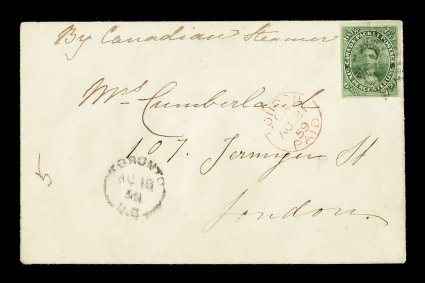 By Canadian Steamer
CANADA PACKET POSTAGE
Mrs Cumberland
LONDON
AU
59
PAID
107. Jermyn St
TORONTO
AU 18
59
U.C
London.
5